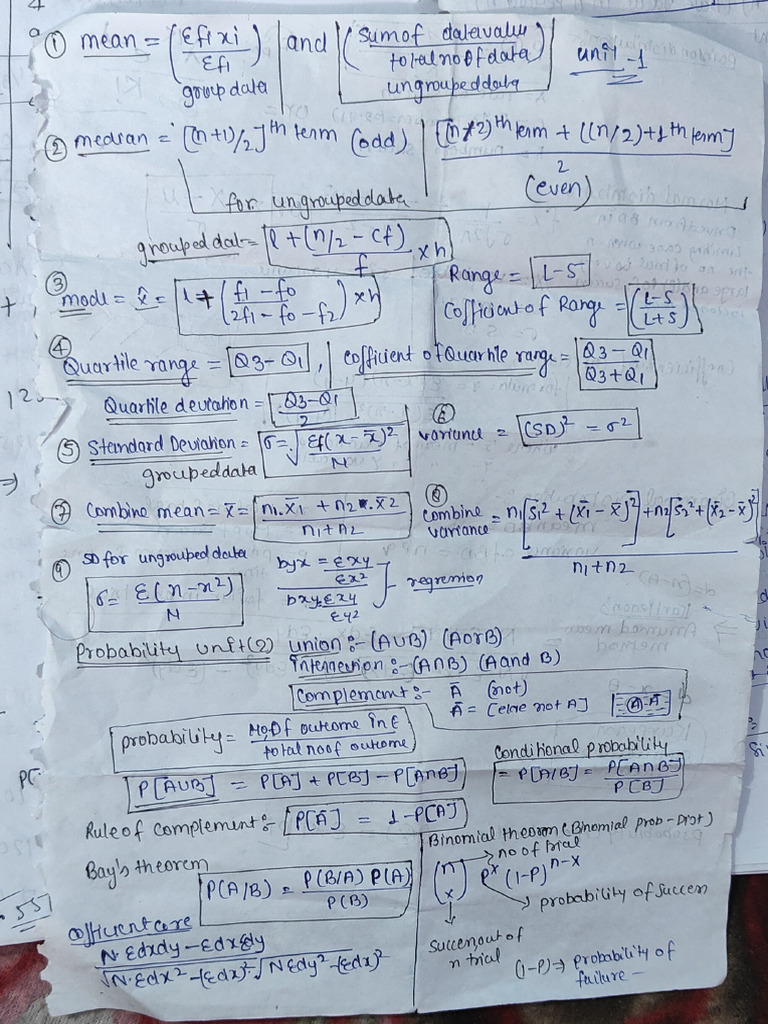 ① mean = (Σfi xi / Σfi) group data | and | (sum of data value / total no of data) ungrouped data unit-1
② median = [(n+1)/2]th term (odd) | [(n/2)th term + ((n/2)+1th term] / 2 (even)
for ungrouped data
grouped dat = l + (n/2 - cf) / f × h
Range = L-S
③ mode = x̂ = l + (f1 - f0 / 2f1 - f0 - f2) × h
Cofficient of Range = (L-S / L+S)
④ Quartile range = Q3 - Q1, Cofficient of Quartile range = Q3 - Q1 / Q3 + Q1
Quartile deviation = Q3 - Q1 / 2
⑤ Standard Deviation = σ = √Σf(x - x̄)² / N
grouped data
⑥ variance = (SD)² = σ²
⑦ Combine mean = x̄ = n1.x̄1 + n2.x̄2 / n1 + n2
⑧ combine variance = n1[s1² + (x̄1 - x̄)²] + n2[s2² + (x̄2 - x̄)²] / n1 + n2
⑨ SD for ungrouped data
σ = Σ(n - n²) / N
byx = Σxy / Σx²
bxy = Σxy / Σy² - regression
Probability unit (2) union :- (A∪B) (A or B)
Intersection :- (A∩B) (A and B)
Complement :- Ā (not)
Ā = [else not A] A Ā
probability = No. of outcome in E / total no of outcome
Conditional probability
= P[A/B] = P[A∩B] / P[B]
P[A∪B] = P[A] + P[B] - P[A∩B]
Rule of complement :- P[Ā] = 1 - P[A]
Binomial theorem (Binomial prob - Dist)
Bay's theorem
P(A/B) = P(B/A) P(A) / P(B)
no of trial
(n x) P^x (1-P)^n-x
probability of succen
Succen out of n trial
(1-P) → probability of failure -
N.Σdxdy - ΣdxΣdy / √N.Σdx² - (Σdx)² √NΣdy² - (Σdx)²